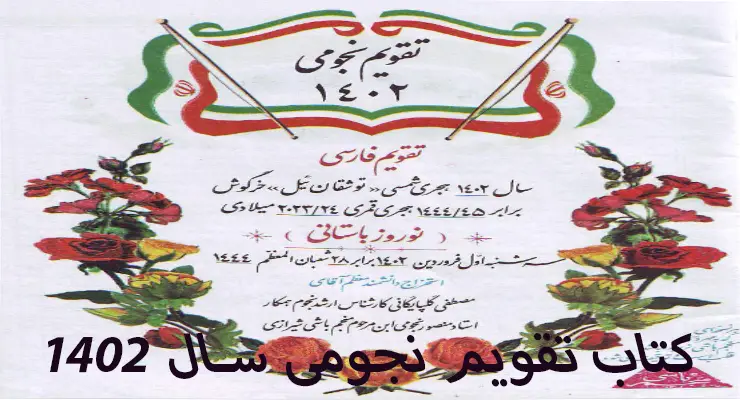 تقویم نجومی
۱۴۰۲
تقویم فارسی
سال ۱۴۰۲ هجری شمسی «توشقان ئیل» خرگوش
برابر ۱۴۴۴/۴۵ هجری قمری ۲۰۲۳/۲۴ میلادی
( نوروز باستانی )
سه شنبه اول فروردین ۱۴۰۲ برابر ۲۸ شعبان المعظم ۱۴۴۴
استخراج دانشمند معظم آقای
مصطفی گلپایگانی کارشناس ارشد نجوم همکار
استاد منصور نجومی ابن مرحوم منجم باشی شیرازی
کتاب تقویم نجومی سال 1402